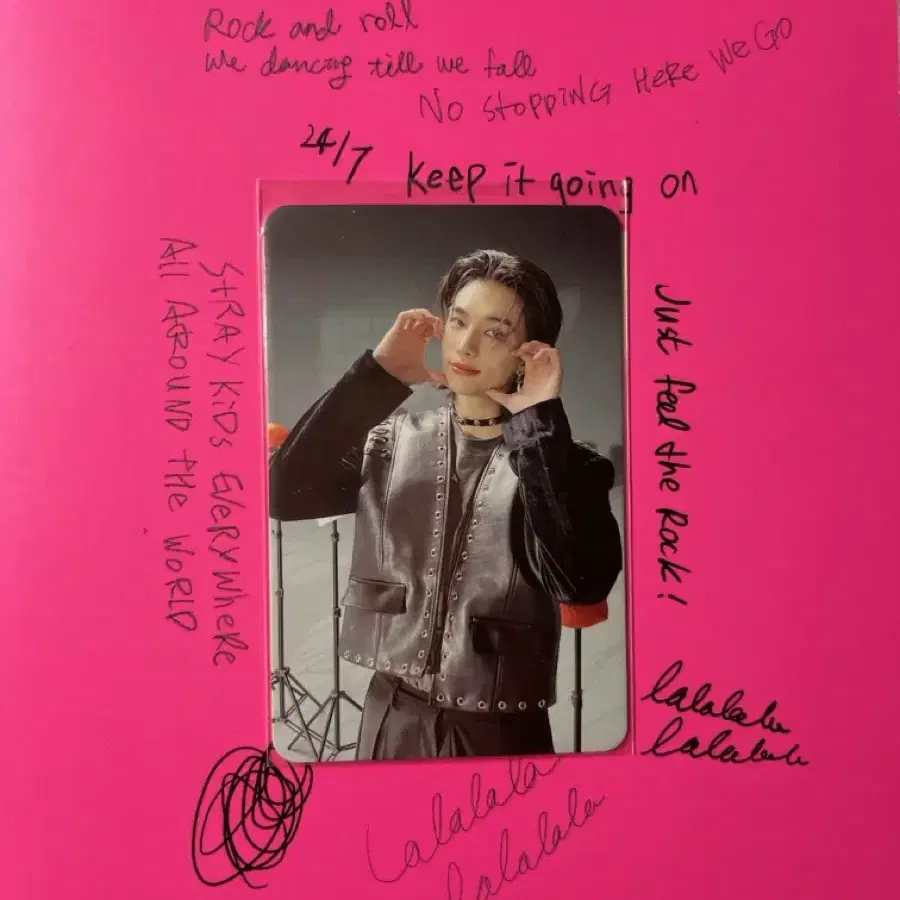 Rock and roll
We dancing till we fall
No stopping Here We Go
24/7
Keep it going on
Just feel the Rock!
StRAY KiDs EVeRYWheRe
All ARoUND tHe WoRLD
lalalala
lalalala
Lalalala
lalalala